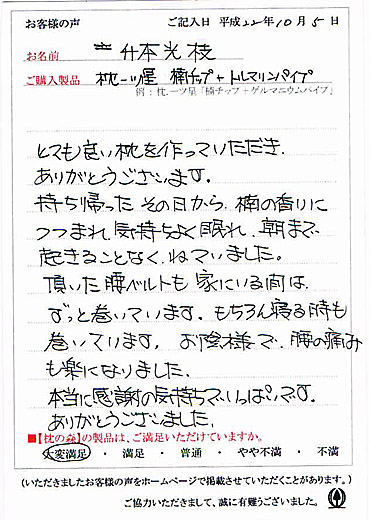 お客様の声　ご記入日 平成22年10月5日
お名前　升本光枝
ご購入製品　枕一ツ星 楠チップ+トルマリンパイプ
例：枕.一ツ星「楠チップ+ゲルマニウムパイプ」
とても良い枕を作っていただき、
ありがとうございます。
持ち帰ったその日から、楠の香りに
つつまれ、気持ちよく眠れ、朝まで
起きることなく、ねていました。
頂いた腰ベルトも家にいる間は
ずっと巻いています。もちろん寝る時も
巻いています。お陰様で、腰の痛み
も楽になりました。
本当に感謝の気持ちで、いっぱいです。
ありがとうございました。
■【枕の森】の製品は、ご満足いただけていますか。
大変満足 ・ 満足 ・ 普通 ・ やや不満 ・ 不満
(いただきましたお客様の声をホームページで掲載させていただくことがあります。)
ご協力いただきまして、誠に有難うございました。